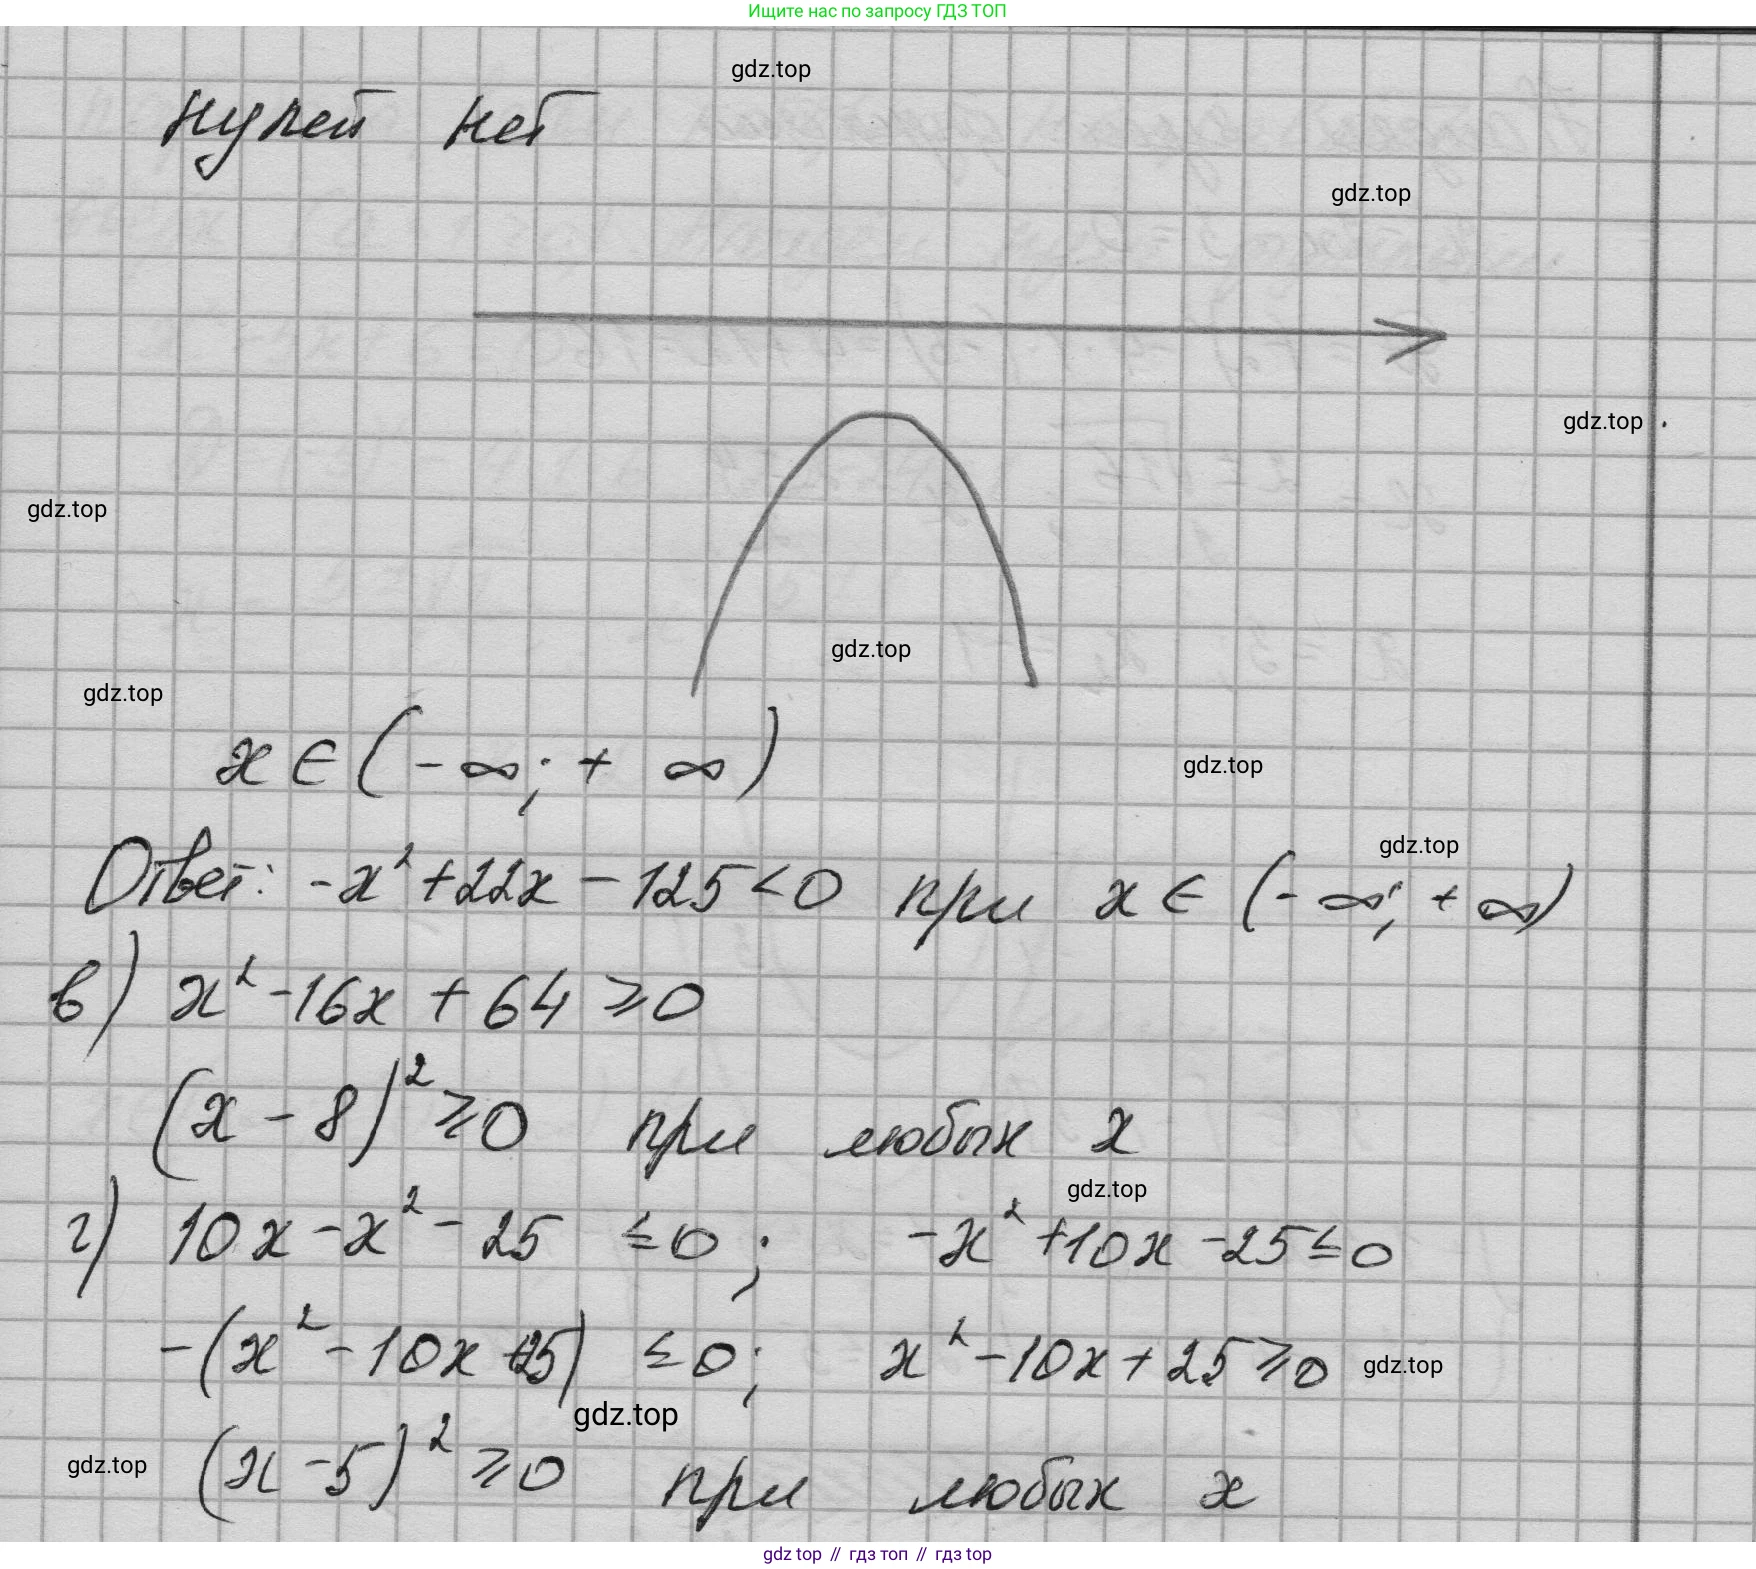 Ищите нас по запросу ГДЗ ТОП
gdz.top
нулей нет
gdz.top
gdz.top
gdz.top
gdz.top
gdz.top
x ∈ (-∞; +∞)
gdz.top
gdz.top
Ответ: -x² + 22x - 125 < 0 при x ∈ (-∞; +∞)
в) x² - 16x + 64 ≥ 0
(x - 8)² ≥ 0 при любых x
gdz.top
г) 10x - x² - 25 ≤ 0; -x² + 10x - 25 ≤ 0
-(x² - 10x + 25) ≤ 0; x² - 10x + 25 ≥ 0
gdz.top
gdz.top
gdz.top
(x - 5)² ≥ 0 при любых x
gdz top // гдз топ // гдз top